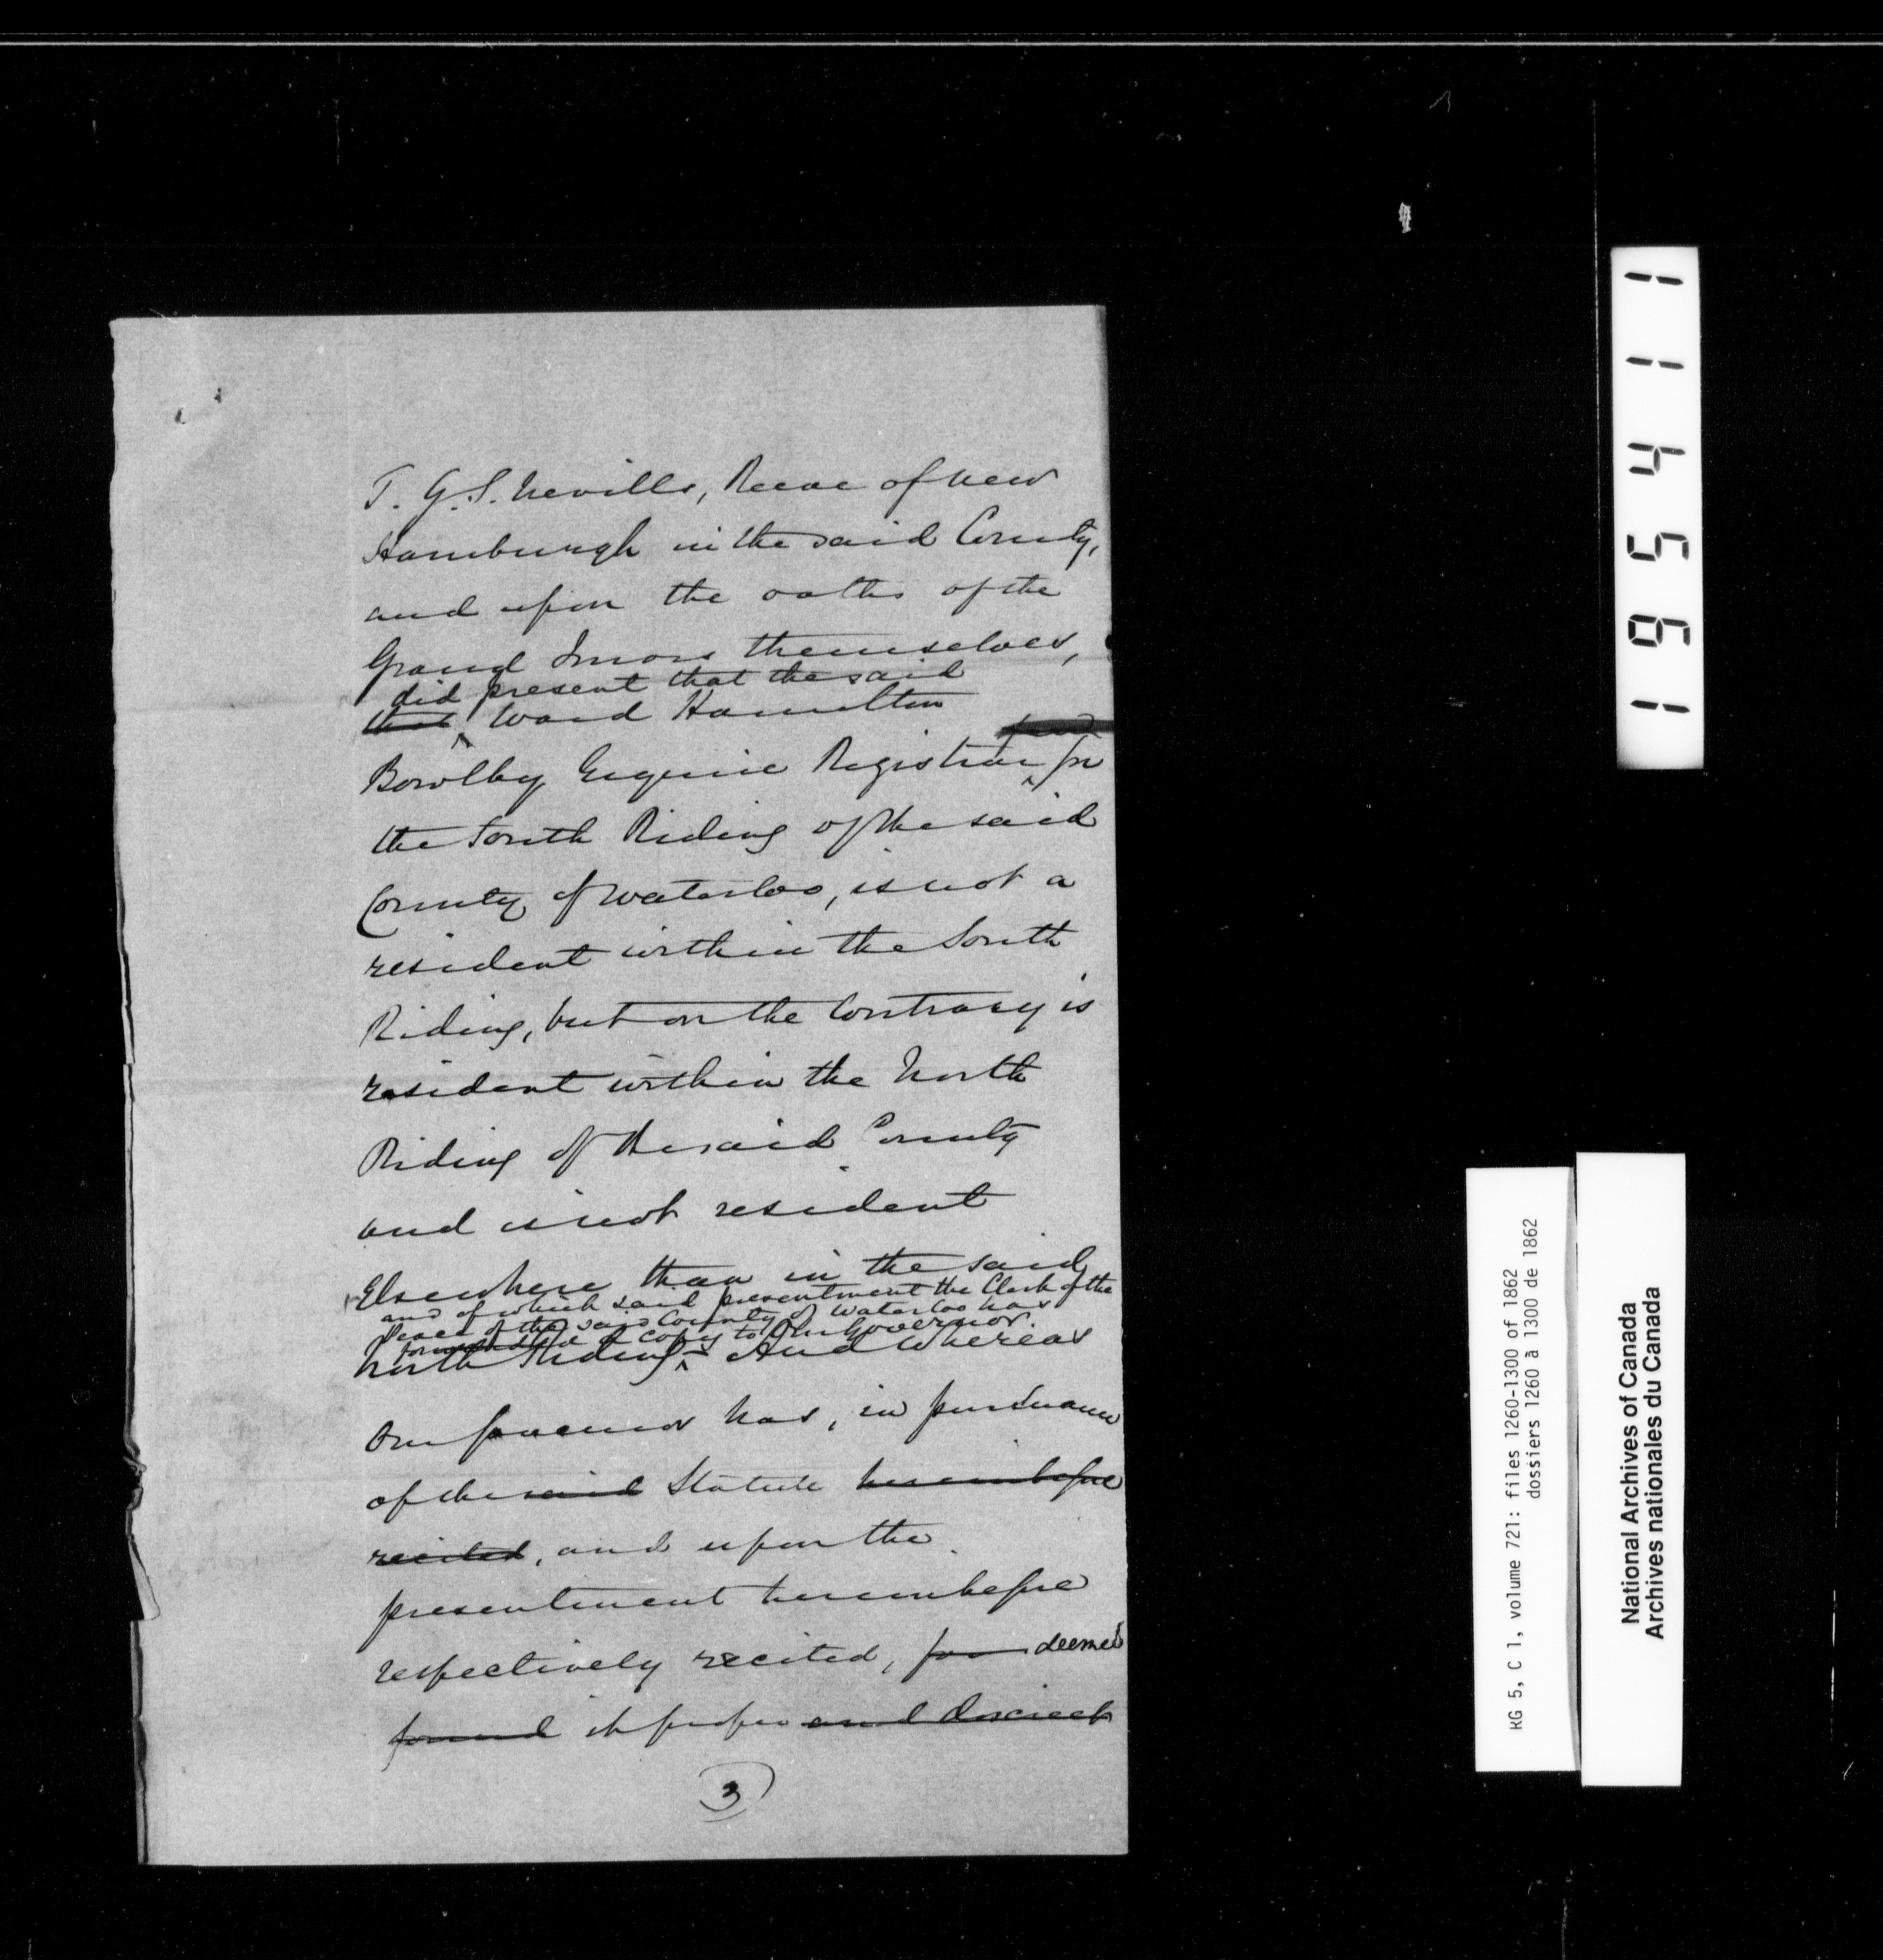 T. G. S. Neville, Reeve of New
Hamburgh in the said County,
and upon the oaths of the
Grand Jurors themselves,
did present that the said
that Ward Hamilton
Bowlby Esquire Registrar for
the South Riding of the said
County of Waterloo, is not a
resident within the South
Riding, but on the Contrary is
resident within the North
Riding of the said County
and is not resident
Elsewhere than in the said
and of which said presentment the Clerk of the
Peace of the said County of Waterloo has
forwarded a copy to Our Governor.
North Riding And Whereas
Our Governor has, in pursuance
of the said Statute hereinbefore
recited, and upon the
presentment hereinbefore
respectively recited, deemed
found it proper and discreet
3
1 9 5 4 1 1
RG 5, C 1, volume 721: files 1260-1300 of 1862
dossiers 1260 à 1300 de 1862
National Archives of Canada
Archives nationales du Canada